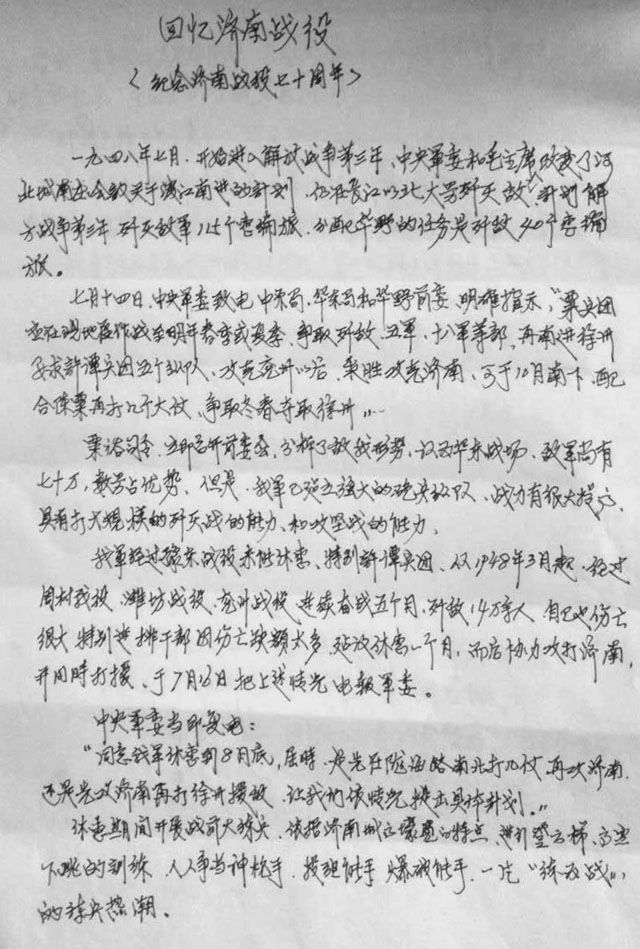 回忆济南战役
〈纪念济南战役七十周年〉
一九四八年七月、开始进入解放战争第三年、中央军委和毛主席改变了河
北城南庄会议关于渡江南进的计划、仍在长江以北大量歼灭敌、计划解
放战争第三年歼灭敌军115个旅、分配华野的任务是歼敌40个
旅。
七月十四日、中央军委致电中原局、华东局和华野前委、明确指示、“粟兵团
应在现地区作战至明年春季或夏季、争取歼敌、五军、十八军等部、再南进、徐州
要求许谭兵团五个纵队、攻克兖州以后、乘胜攻克济南、可于10月南下、配
合陈粟再打几个大仗、争取冬春夺取徐州”
粟司令、立即召开前委会、分析了敌我形势、认为华东战场、敌军尚有
七十万、数量占优势、但是、我军已建立强大的炮兵部队、战力有很大提高、
具有打大规模的歼灭战的能力、和攻坚战的能力、
我军经过豫东战役未能休整、特别许谭兵团、从1948年3月起、经过
周村战役、潍坊战役、兖州战役、连续奋战五个月、歼敌14万余人、自己也伤亡
很大特别连排干部因伤亡缺额太多、建议休整一个月、而后协力攻打济南、
并同时打援、于7月16日把上述情况电报军委。
中央军委当即复电：
“同意我军休整到8月底，届时、是先在陇海路南北打几仗再攻济南、
还是先攻济南再打徐州援敌、让我们依情况提出具体计划。”
休整期间开展战前大练兵、依据济南城的特点、进行云梯、高
下跳的训练、人人争当神枪手、投弹能手、爆破能手、一片“练为战”
的练兵热潮。